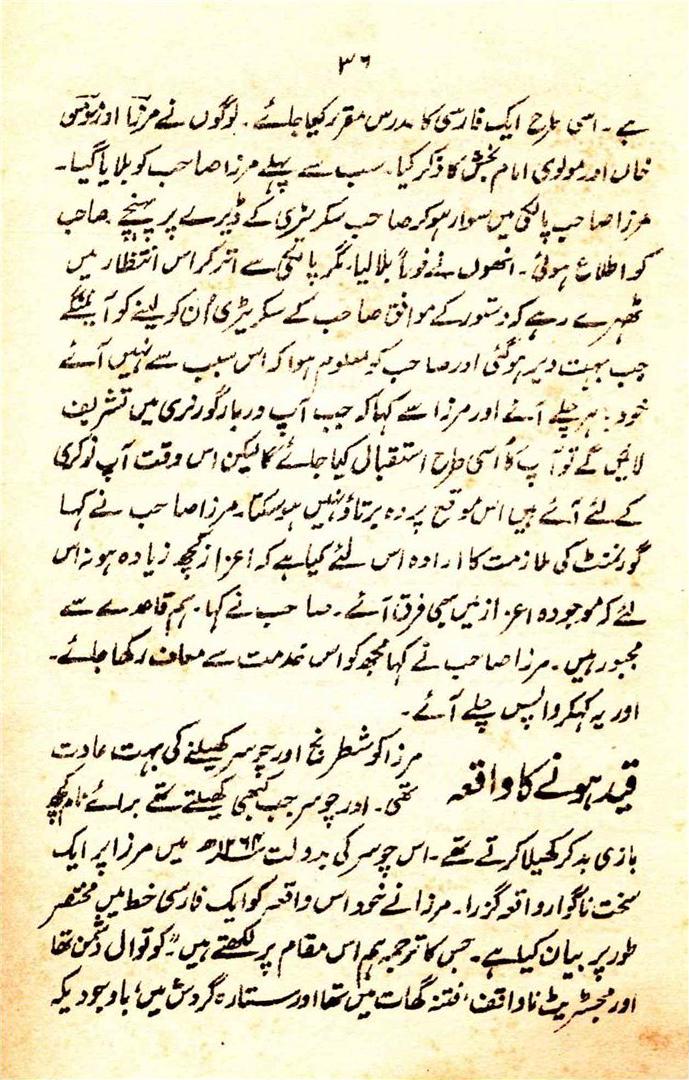 ۳۶
ہے۔ اسی طرح ایک فارسی کا مدرس مقرر کیا جائے۔ لوگوں نے مرزا اور مومن
خاں اور مولوی امام بخش کا ذکر کیا۔ سب سے پہلے مرزا صاحب کو بلایا گیا۔
مرزا صاحب پالکی میں سوار ہو کر صاحب سکریٹری کے ڈیرے پر پہنچے۔ صاحب
کو اطلاع ہوئی۔ انھوں نے فوراً بلا لیا، مگر پالکی سے اتر کر اس انتظار میں
ٹھیرے رہے کہ دستور کے موافق صاحب کے سکریٹری اُن کو لینے کو آئینگے
جب بہت دیر ہو گئی اور صاحب کو معلوم ہوا کہ اس سبب سے نہیں آئے
خود باہر چلے آئے اور مرزا سے کہا کہ جب آپ دربار گورنری میں تشریف
لائیں گے تو آپ کا اسی طرح استقبال کیا جائے گا لیکن اس وقت آپ نوکری
کے لئے آئے ہیں اس موقع پر وہ برتاؤ نہیں ہو سکتا۔ مرزا صاحب نے کہا
گورنمنٹ کی ملازمت کا ارادہ اس لئے کیا ہے کہ اعزاز کچھ زیادہ ہو نہ اس
لئے کہ موجودہ اعزاز میں بھی فرق آئے۔ صاحب نے کہا، ہم قاعدے سے
مجبور ہیں۔ مرزا صاحب نے کہا مجھ کو اس خدمت سے معاف رکھا جائے۔
اور یہ کہکر واپس چلے آئے۔
قید ہونے کا واقعہ
مرزا کو شطرنج اور چوسر کھیلنے کی بہت عادت
تھی۔ اور چوسر جب کبھی کھیلتے تھے برائے نام کچھ
بازی بد کر کھیلا کرتے تھے۔ اس چوسر کی بدولت ۱۲۶۴ھ میں مرزا پر ایک
سخت ناگوار واقعہ گزرا۔ مرزا نے خود اس واقعہ کو ایک فارسی خط میں مختصر
طور پر بیان کیا ہے۔ جس کا ترجمہ ہم اس مقام پر لکھتے ہیں۔ "کوتوال دشمن تھا
اور مجسٹریٹ ناواقف، فتنہ گھات میں تھا اور ستارہ گردش میں، باوجودیکہ